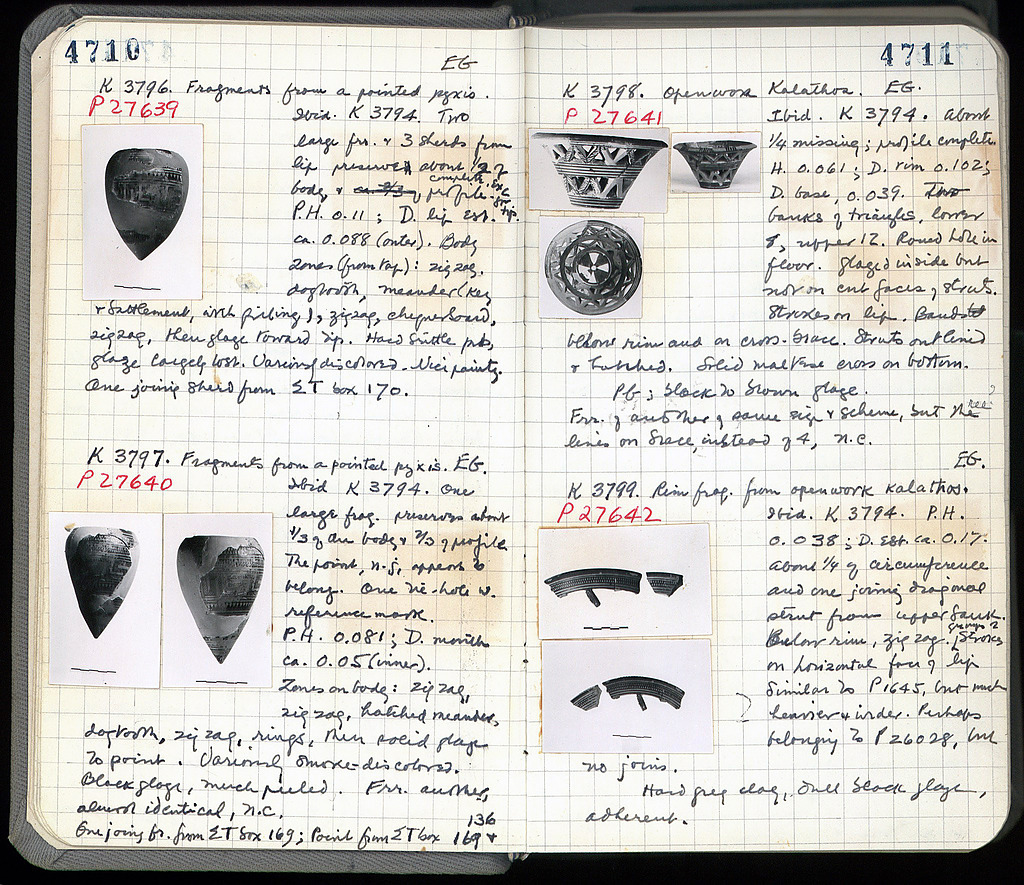 4710
EG
K 3796. Fragments from a pointed pyxis.
P 27639
Ibid. K 3794. Two
large frr. & 3 sherds from
lip preserve about 1/2 of
body, & complete profile exc. for tip.
P.H. 0.11; D. lip est.
ca. 0.088 (outer). Body
zones (from top): zigzag,
dogtooth, meander (key
& battlement, with filling), zigzag, chequerboard,
zigzag, then glaze toward tip. Hard brittle fab,
glaze largely lost. Variously discolored. Nice painting.
One joining sherd from ΣT box 170.
K 3797. Fragments from a pointed pyxis. EG.
P 27640
Ibid K 3794. One
large frag. preserves about
1/3 of the body & 2/3 of profile
The point, n.j., appears to
belong. One tie-hole w.
reference mark.
P.H. 0.081; D. mouth
ca. 0.05 (inner).
Zones on body: zigzag,
zigzag, hatched meander,
dogtooth, zigzag, rings, then solid glaze
to point. Variously smoke-discolored.
Black glaze, much peeled. Frr. another,
almost identical, n.c.
136
One joing fr. from ΣT box 169; Point from ΣT box 169 &
4711
K 3798. Openwork Kalathos. EG.
P 27641
Ibid. K 3794. About
1/4 missing; profile complete.
H. 0.061; D. rim 0.102;
D. base, 0.039. Two
banks of triangles, lower
8, upper 12. Round hole in
floor. Glazed inside but
not on cut faces of struts.
Strokes on lip. Bands
below rim and on cross-brace. Struts outlined
& hatched. Solid maltese cross on bottom.
PG; black to brown glaze.
Frr. of another of same size & scheme, but the
lines on brace, instead of 4, n.c.
EG.
K 3799. Rim frag. from openwork Kalathos.
P 27642
Ibid. K 3794. P.H.
0.038; D. est. ca. 0.17.
About 1/4 of circumference
and one joining diagonal
strut from upper bank.
Below rim, zigzag. groups of Strokes
on horizontal face of lip
Similar to P 1645, but much
heavier & wider. Perhaps
belonging to P 26028, but
no joins.
Hard grey clay, dull black glaze,
adherent.